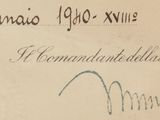 nnaio 1940-XVIIIº
Il Comandante della